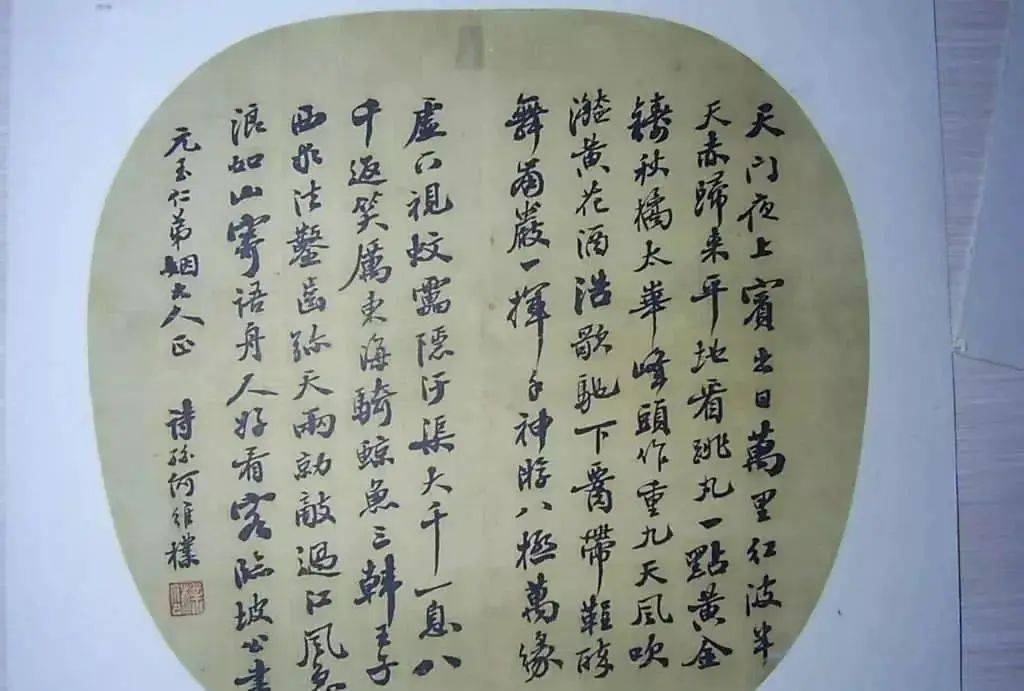 天門夜上賓出日萬里紅波半
天赤歸來平地看跳丸一點黃金
鑄秋橘太華峰頭作重九天風吹
灩黃花酒浩歌馳下腰帶鞓醉
舞崩巖一揮手神游八極萬緣
虛下視蚊雷隱汙渠大千一息八
十返笑厲東海騎鯨魚三韓王子
西求法鑿齒彌天兩勍敵過江風急
浪如山寄語舟人好看客臨坡公書
元玉仁弟姻大人正 詩孫何維樸